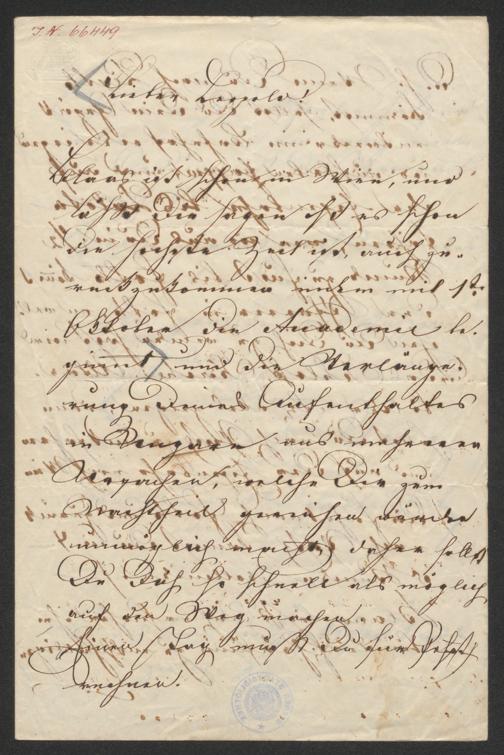 I. N. 66449
Lieber Leopold!
Blaas ist schon in Wien, und
läßt Dir sagen daß es schon
die höchste Zeit ist auch zu-
rückzukommen indem mit 1ten
Oktober die Academie be-
ginnt, und die Verlänge-
rung Deines Aufenthaltes
in Ungarn aus mehreren
Ursachen, welche Dir zum
Nachtheil gereichen würden
unmöglich macht, daher sollst
Du Dich so schnell als möglich
auf den Weg machen.
Einen Tag mußt Du für Pest
rechnen.